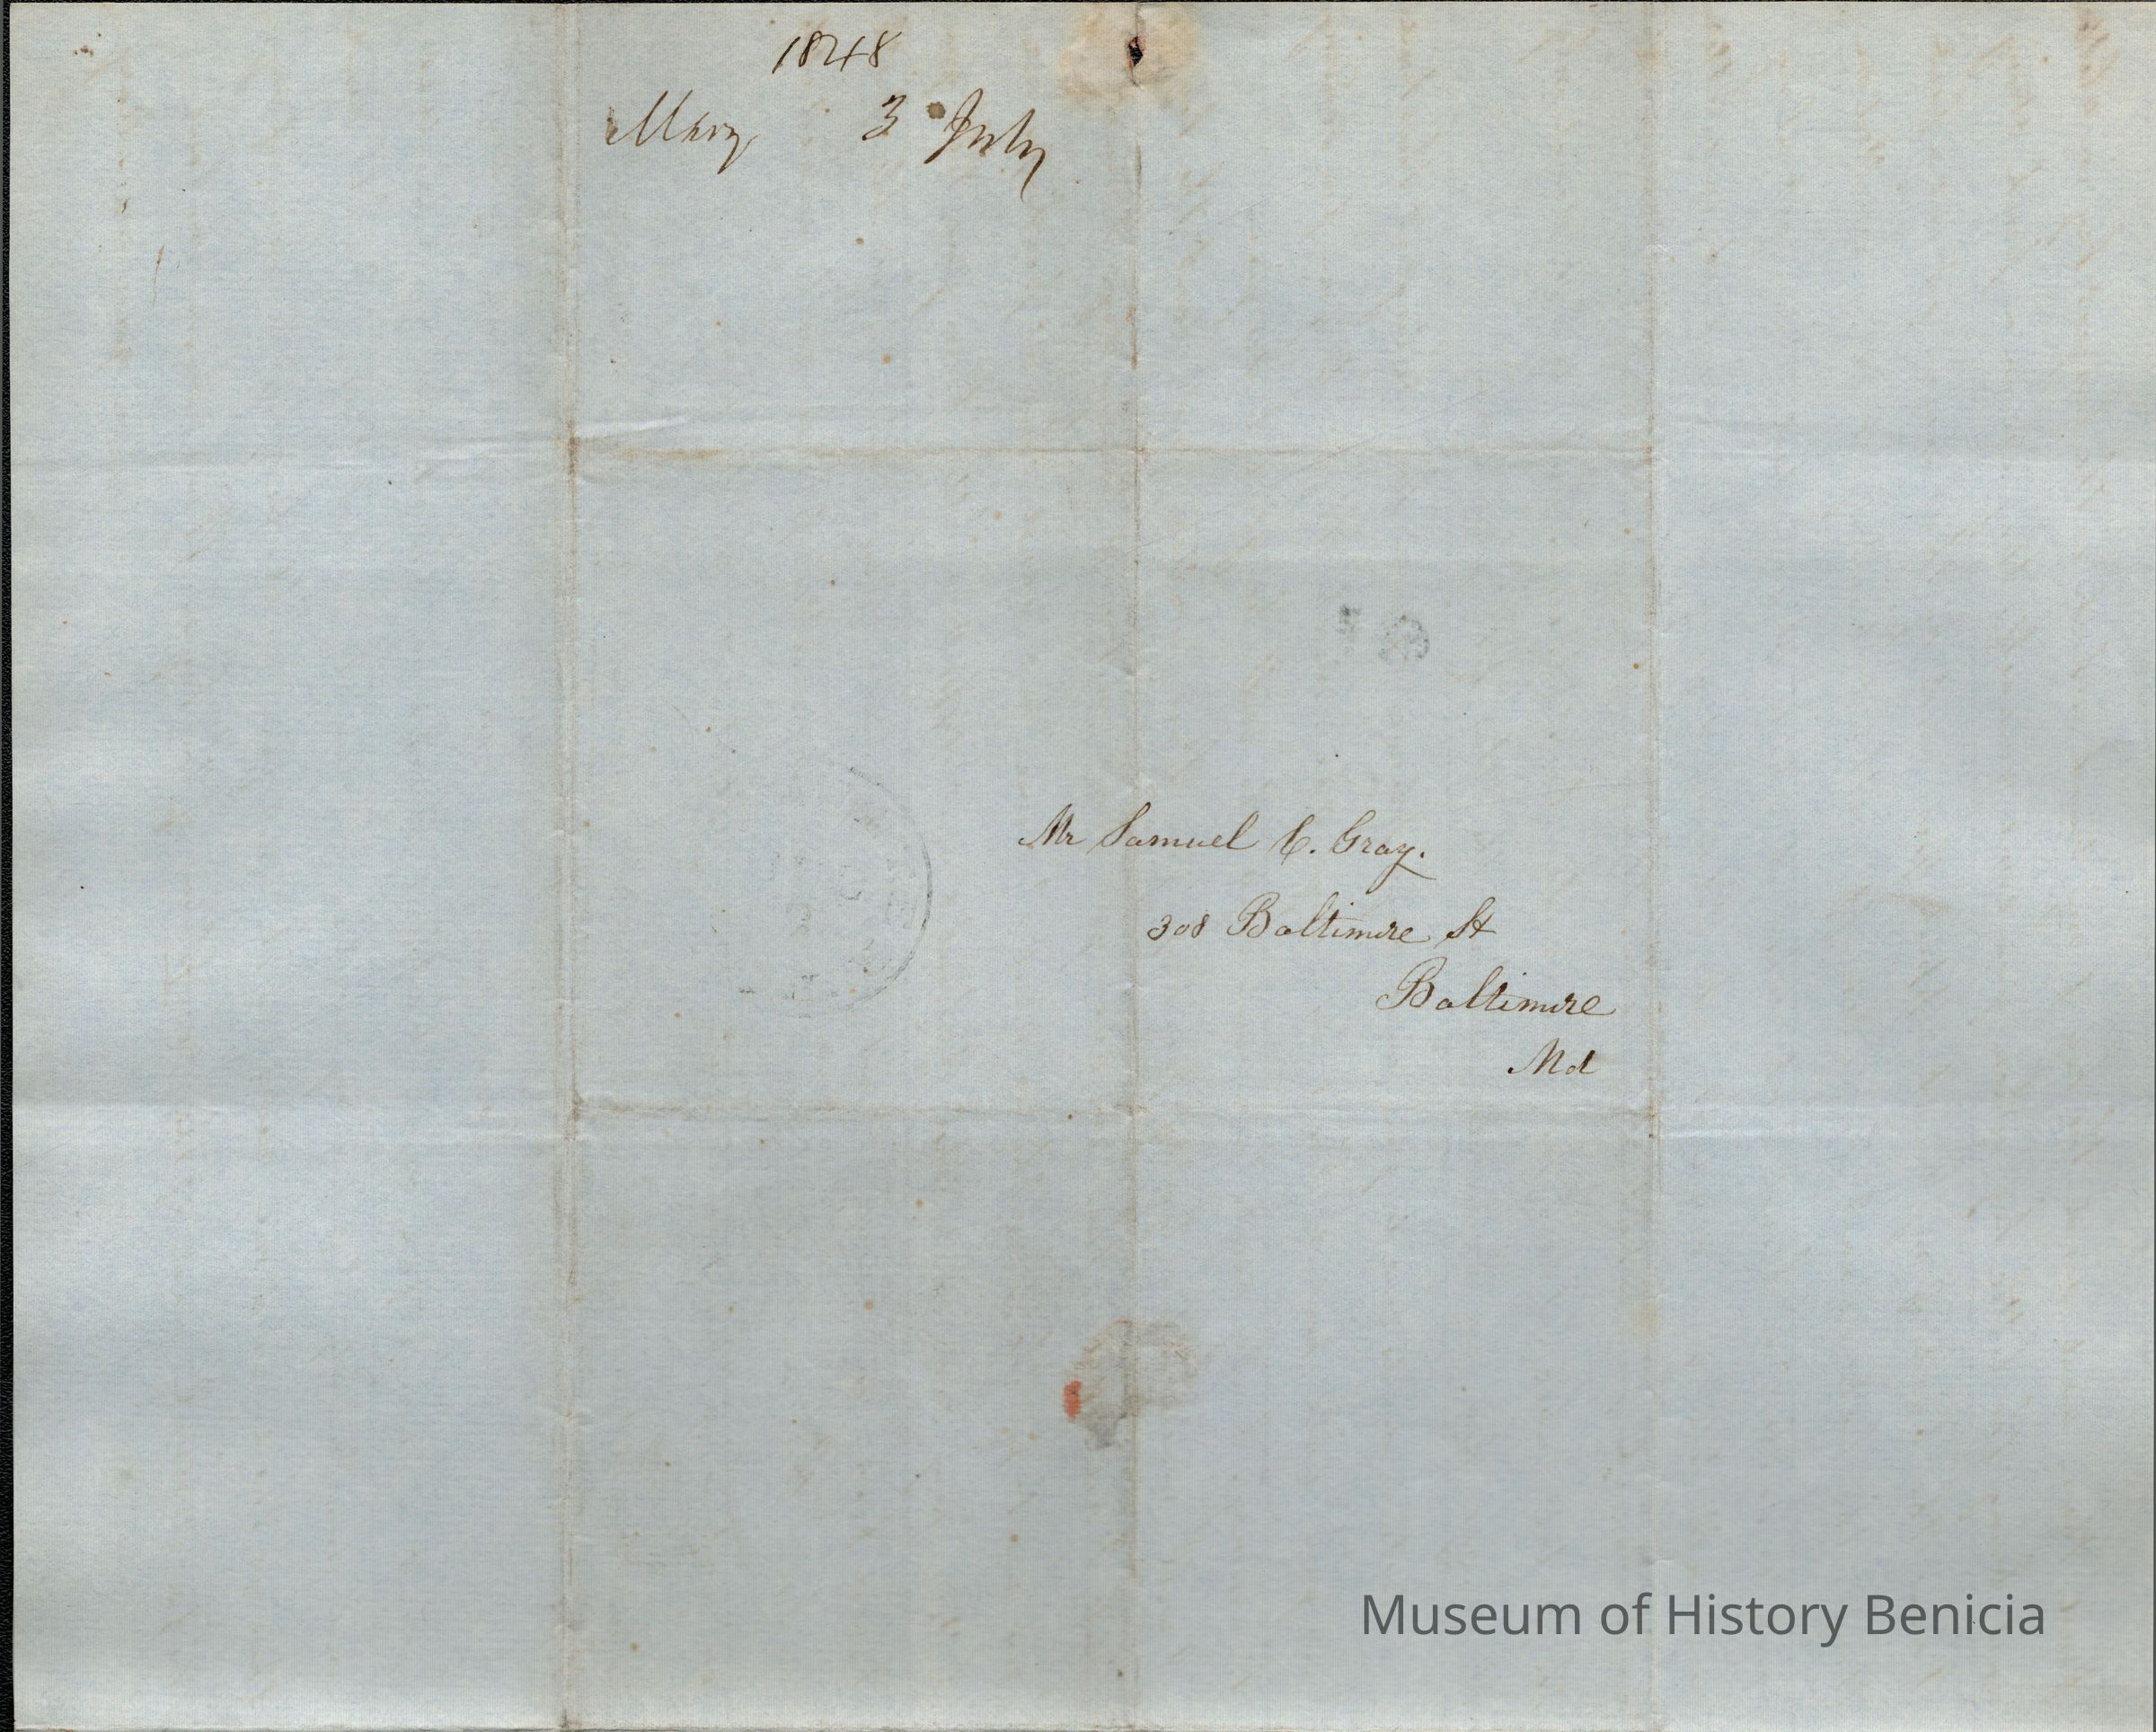 1848
Mary 3 July
Mr Samuel C. Gray.
308 Baltimore St
Baltimore
Md
Museum of History Benicia